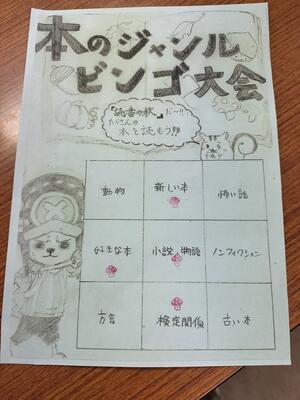 本のジャンル
ビンゴ大会
『読書の秋』だー!!
たくさんの
本を読もう!!
動物
新しい本
怖い話
好きな本
小説、物語
ノンフィクション
方言
検定関係
古い本